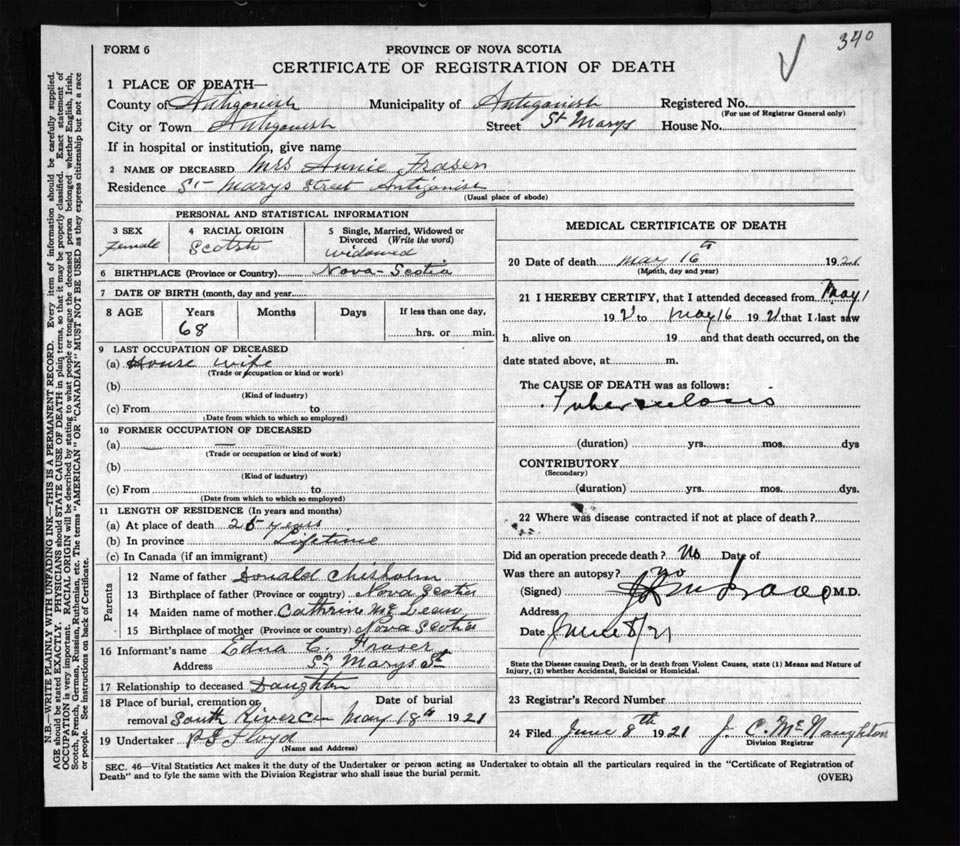 340
FORM 6
PROVINCE OF NOVA SCOTIA
CERTIFICATE OF REGISTRATION OF DEATH
1 PLACE OF DEATH—
County of Antigonish Municipality of Antigonish Registered No.
(For use of Registrar General only)
City or Town Antigonish Street St Marys House No.
If in hospital or institution, give name
2 NAME OF DECEASED Mrs Annie Fraser
Residence St Marys Street Antigonish
(Usual place of abode)
PERSONAL AND STATISTICAL INFORMATION
3 SEX Female
4 RACIAL ORIGIN Scotsh
5 Single, Married, Widowed or Divorced (Write the word) widowed
6 BIRTHPLACE (Province or Country) Nova-Scotia
7 DATE OF BIRTH (month, day and year)
8 AGE Years Months Days If less than one day,
68 hrs. or min.
9 LAST OCCUPATION OF DECEASED
(a) House wife
(Trade or occupation or kind or work)
(b)
(Kind of industry)
(c) From to
(Date from which to which so employed)
10 FORMER OCCUPATION OF DECEASED
(a) — —
(Trade or occupation or kind of work)
(b)
(Kind of industry)
(c) From to
(Date from which to which so employed)
11 LENGTH OF RESIDENCE (In years and months)
(a) At place of death 25 years
(b) In province Lifetime
(c) In Canada (if an immigrant)
Parents
12 Name of father Donald Chisholm
13 Birthplace of father (Province or country) Nova Scotia
14 Maiden name of mother Cathrine McLean
15 Birthplace of mother (Province or country) Nova Scotia
16 Informant's name Edna C. Fraser
Address St Marys St
17 Relationship to deceased Daughter
18 Place of burial, cremation or Date of burial
removal South River Cem May 18th 1921
19 Undertaker Floyd
(Name and Address)
MEDICAL CERTIFICATE OF DEATH
20 Date of death May 16th 1921
(Month, day and year)
21 I HEREBY CERTIFY, that I attended deceased from May 1
192 to May 16 192 that I last saw
h alive on 19 and that death occurred, on the
date stated above, at m.
The CAUSE OF DEATH was as follows:
Tuberculosis
(duration) yrs. mos. dys
CONTRIBUTORY
(Secondary)
(duration) yrs. mos. dys.
22 Where was disease contracted if not at place of death?
Did an operation precede death? No Date of
Was there an autopsy? no
(Signed) M.D.
Address
Date June 8/21
State the Disease causing Death, or in death from Violent Causes, state (1) Means and Nature of
Injury, (2) whether Accidental, Suicidal or Homicidal.
23 Registrar's Record Number
24 Filed June 8th 1921 J. C. McNaughton
Division Registrar
SEC. 46—Vital Statistics Act makes it the duty of the Undertaker or person acting as Undertaker to obtain all the particulars required in the "Certificate of Registration of
Death" and to fyle the same with the Division Registrar who shall issue the burial permit.
(OVER)
N.B.—WRITE PLAINLY WITH UNFADING INK—THIS IS A PERMANENT RECORD. Every item of information should be carefully supplied.
AGE should be stated EXACTLY. PHYSICIANS should STATE CAUSE OF DEATH in plain terms, so that it may be properly classified. Exact statement of
OCCUPATION is very important. RACIAL ORIGIN will be described by stating to what people or tongue the deceased person belonged whether English, Irish,
Scotch, French, German, Russian, Ruthenian, etc. The terms "AMERICAN" OR "CANADIAN" MUST NOT BE USED as they express citizenship but not a race
or people. See instructions on back of Certificate.